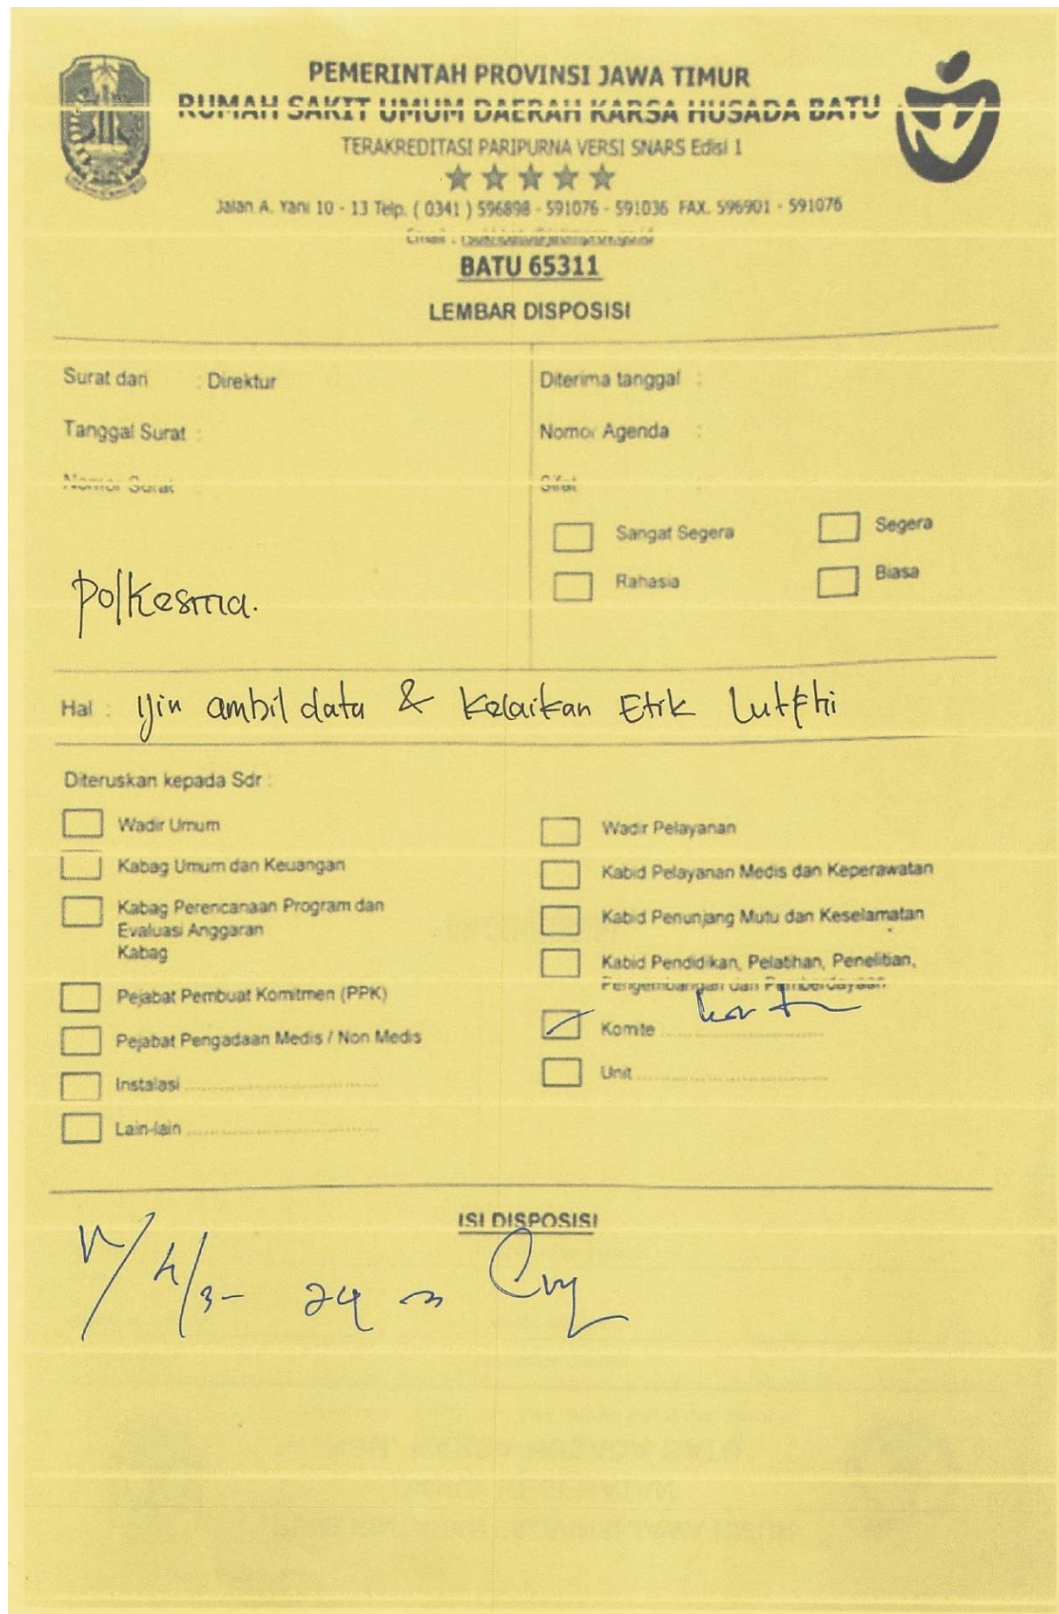 PEMERINTAH PROVINSI JAWA TIMUR
RUMAH SAKIT UMUM DAERAH KARSA HUSADA BATU
TERAKREDITASI PARIPURNA VERSI SNARS Edisi 1
Jalan A. Yani 10 - 13 Telp. ( 0341 ) 596898 - 591076 - 591036 FAX. 596901 - 591076
Email :
BATU 65311
LEMBAR DISPOSISI
Surat dari : Direktur
Tanggal Surat :
Nomor Surat
Polkesma.
Diterima tanggal :
Nomor Agenda :
Sifat :
Sangat Segera
Segera
Rahasia
Biasa
Hal : Ijin ambil data & Kelaikan Etik Lutfhi
Diteruskan kepada Sdr :
Wadir Umum
Kabag Umum dan Keuangan
Kabag Perencanaan Program dan
Evaluasi Anggaran
Kabag
Pejabat Pembuat Komitmen (PPK)
Pejabat Pengadaan Medis / Non Medis
Instalasi
Lain-lain
Wadir Pelayanan
Kabid Pelayanan Medis dan Keperawatan
Kabid Penunjang Mutu dan Keselamatan
Kabid Pendidikan, Pelatihan, Penelitian,
Pengembangan dan Pemberdayaan
Komite
Unit
ISI DISPOSISI